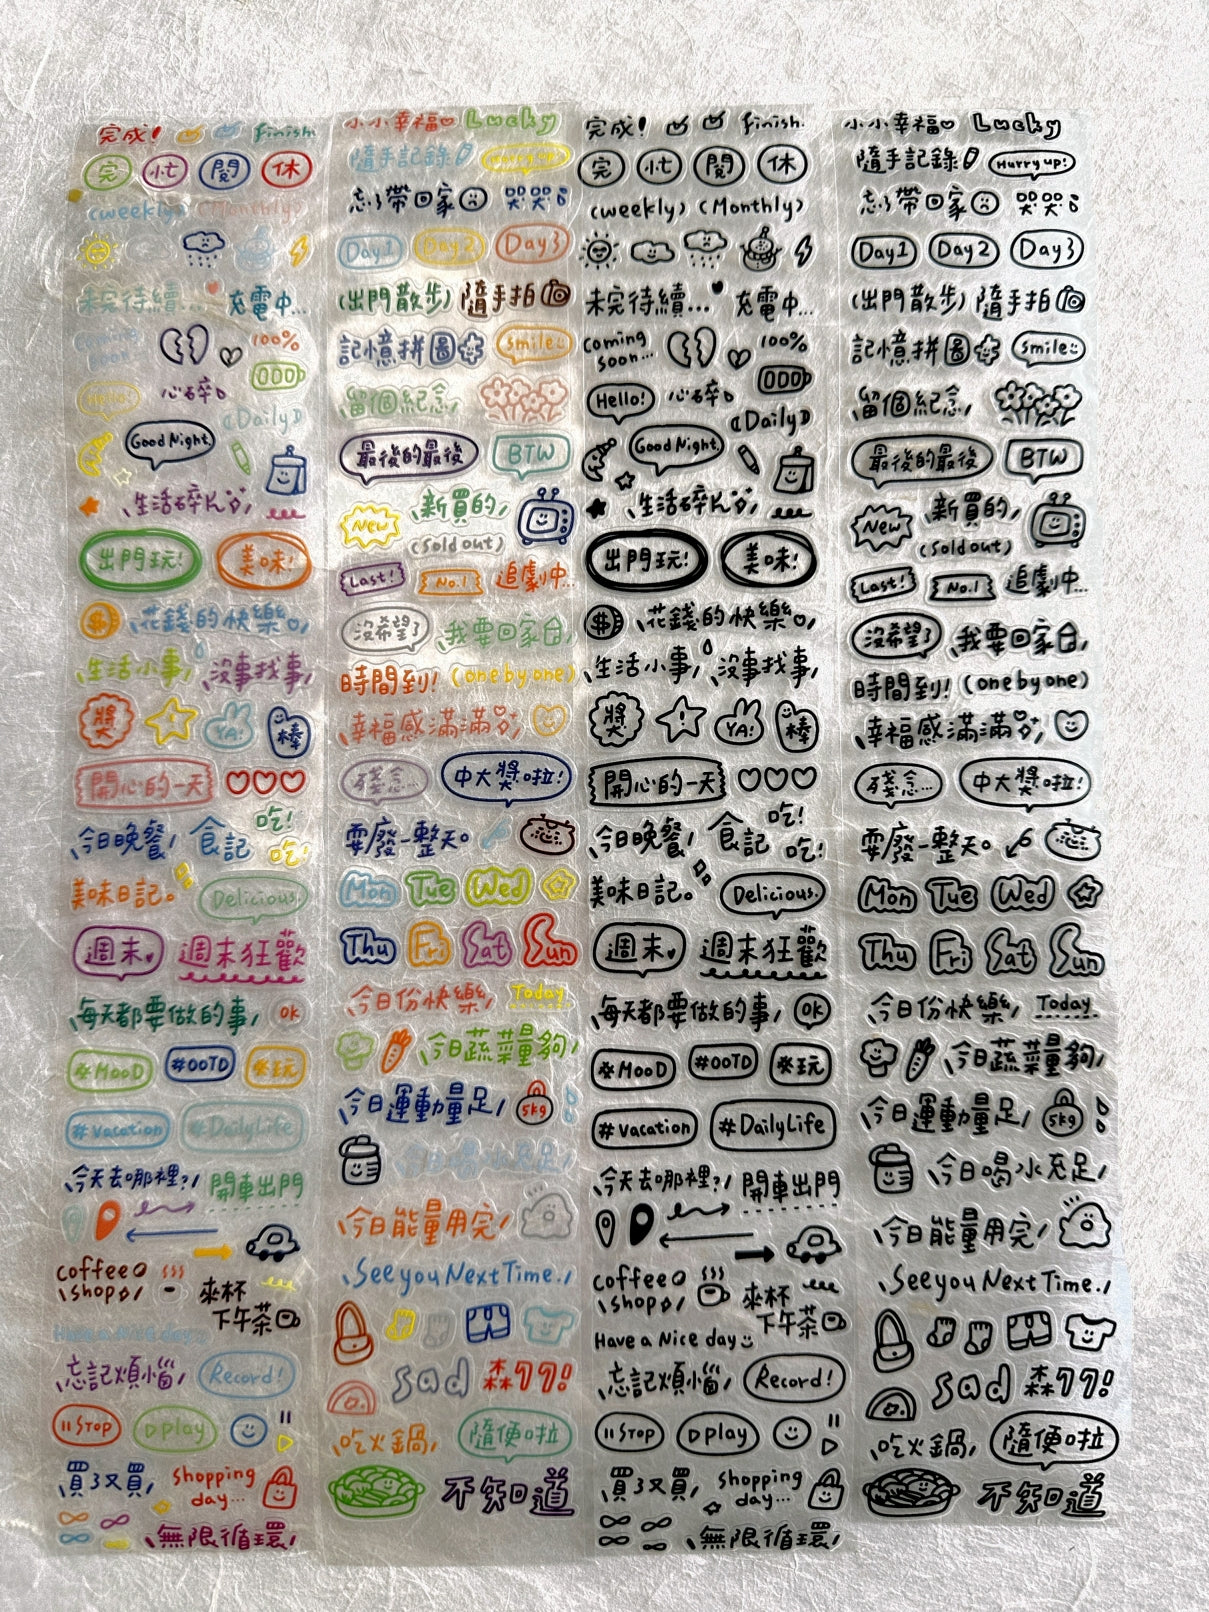 完成! finish.
完 忙 閱 休
(weekly) (Monthly)
未完待續... 充電中...
coming soon... 100%
Hello! 心碎
(Daily)
Good Night.
生活碎片
出門玩! 美味!
$ 花錢的快樂
生活小事 沒事找事
獎 YA! 棒
開心的一天
今日晚餐 食記 吃! 吃!
美味日記。 Delicious.
週末 週末狂歡
每天都要做的事 OK
#MooD #OOTD #玩
#vacation #DailyLife
今天去哪裡? 開車出門
coffee shop 來杯下午茶
Have a Nice day
忘記煩惱 Record!
STOP play
買了又買 shopping day...
無限循環
小小幸福 Lucky
隨手記錄 Hurry up!
忘了帶回家 哭哭
Day1 Day2 Day3
(出門散步) 隨手拍
記憶拼圖 smile
留個紀念
最後的最後 BTW
New 新買的
(Sold out)
Last! No.1 追劇中...
沒希望了 我要回家
時間到! (one by one)
幸福感滿滿
殘念... 中大獎啦!
耍廢一整天。
Mon Tue Wed
Thu Fri Sat Sun
今日份快樂 Today
今日蔬菜量夠
今日運動量足 5kg
今日喝水充足
今日能量用完
See you Next Time.
sad 森77!
吃火鍋 隨便啦
不知道
完成! finish.
完 忙 閱 休
(weekly) (Monthly)
未完待續... 充電中...
coming soon... 100%
Hello! 心碎
(Daily)
Good Night.
生活碎片
出門玩! 美味!
$ 花錢的快樂
生活小事 沒事找事
獎 YA! 棒
開心的一天
今日晚餐 食記 吃! 吃!
美味日記。 Delicious.
週末 週末狂歡
每天都要做的事 OK
#MooD #OOTD #玩
#vacation #DailyLife
今天去哪裡? 開車出門
coffee shop 來杯下午茶
Have a Nice day
忘記煩惱 Record!
STOP play
買了又買 shopping day...
無限循環
小小幸福 Lucky
隨手記錄 Hurry up!
忘了帶回家 哭哭
Day1 Day2 Day3
(出門散步) 隨手拍
記憶拼圖 smile
留個紀念
最後的最後 BTW
New 新買的
(Sold out)
Last! No.1 追劇中...
沒希望了 我要回家
時間到! (one by one)
幸福感滿滿
殘念... 中大獎啦!
耍廢一整天。
Mon Tue Wed
Thu Fri Sat Sun
今日份快樂 Today
今日蔬菜量夠
今日運動量足 5kg
今日喝水充足
今日能量用完
See you Next Time.
sad 森77!
吃火鍋 隨便啦
不知道